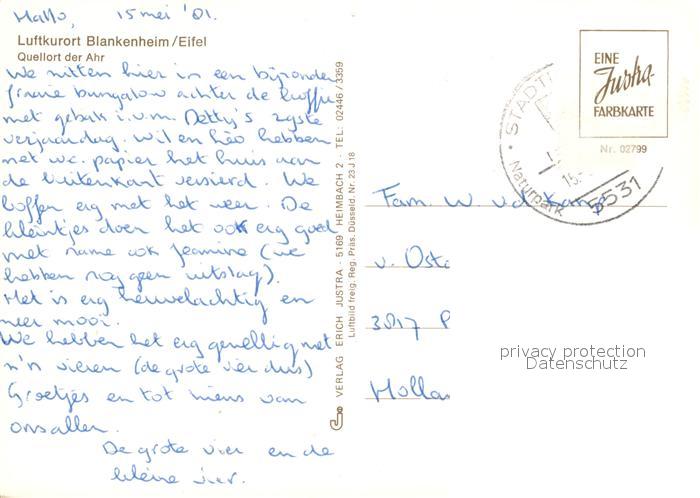 Hallo, 15 mei '81.
Luftkurort Blankenheim/Eifel
Quellort der Ahr
We zitten hier in een bijzonder
fraaie bungalow achter de koffie
met gebak i.v.m. Detty's 29ste
verjaardag. Wil en Leo hebben
met wc. papier het huis aan
de buitenkant versierd. We
boffen erg met het weer. De
kleintjes doen het ook erg goed
met name ook Jeanine (we
hebben nog geen uitslag).
Het is erg heuvelachtig en
zeer mooi.
We hebben het erg gezellig met
z'n vieren (de grote vier dus)
Groetjes en tot ziens van
ons allen.
De grote vier en de
kleine vier.
VERLAG ERICH JUSTRA · 5169 HEIMBACH 2 · TEL: 02446/3359
Luftbild freig. Reg. Präs. Düsseld. Nr. 23 J 18
EINE
Justra-
FARBKARTE
Nr. 02799
STADT
Naturpark
15.
5531
Fam. W. v.d.
v. Osta
3817 P
Holla
privacy protection
Datenschutz